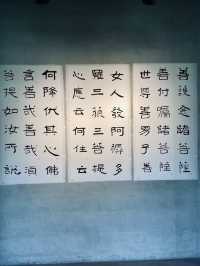 善護念諸菩薩
善付囑諸菩薩
世尊善男子善
女人發阿耨多
羅三藐三菩提
心應云何住云
何降伏其心佛
言善哉善哉須
菩提如汝所說